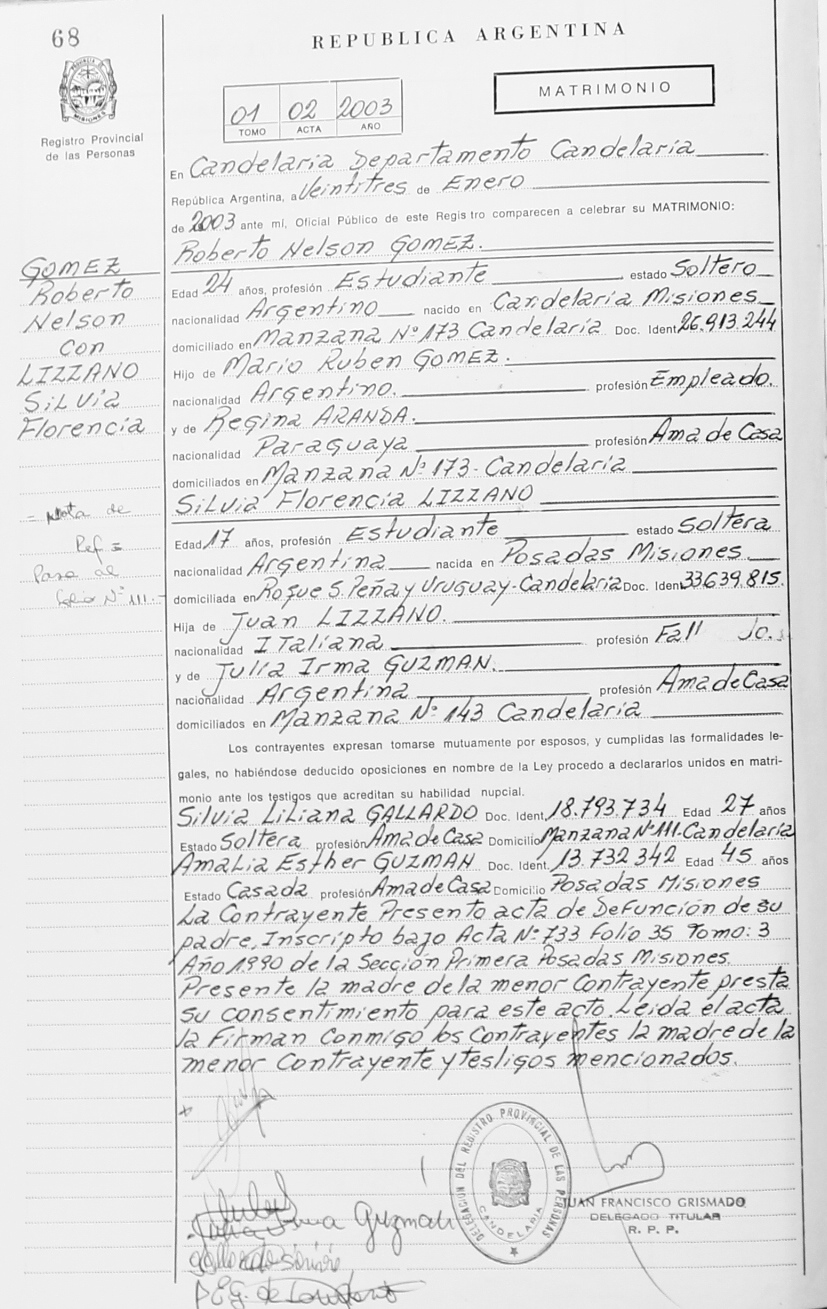 68
REPUBLICA ARGENTINA
MATRIMONIO
01 02 2003
TOMO ACTA AÑO
PROVINCIA DE MISIONES
Registro Provincial
de las Personas
GOMEZ
Roberto
Nelson
con
LIZZANO
SiLVia
Florencia
Nota de
Ref =
Pasa de
folio Nº 111.-
En Candelaria Departamento Candelaria
República Argentina, a Veintitres de Enero
de 2003 ante mi, Oficial Público de este Registro comparecen a celebrar su MATRIMONIO:
Roberto Nelson GOMEZ.
Edad 24 años, profesión Estudiante estado Soltero
nacionalidad Argentino nacido en Candelaria Misiones
domiciliado en Manzana Nº 173 Candelaria Doc. Ident. 26.913.244
Hijo de Mario Ruben GOMEZ.
nacionalidad Argentino. profesión Empleado.
y de Regina ARANDA.
nacionalidad Paraguaya profesión Ama de Casa
domiciliados en Manzana Nº 173 - Candelaria
SiLVia Florencia LIZZANO
Edad 17 años, profesión Estudiante estado Soltera
nacionalidad Argentina nacida en Posadas Misiones
domiciliada en Roque S. Peña y Uruguay - Candelaria Doc. Ident. 33.639.815.
Hija de Juan LIZZANO.
nacionalidad ITaliana profesión Fall do.
y de Julia Irma GUZMAN.
nacionalidad Argentina profesión Ama de Casa
domiciliados en Manzana Nº 143 Candelaria
Los contrayentes expresan tomarse mutuamente por esposos, y cumplidas las formalidades le-
gales, no habiéndose deducido oposiciones en nombre de la Ley procedo a declararlos unidos en matri-
monio ante los testigos que acreditan su habilidad nupcial.
Silvia Liliana GALLARDO Doc. Ident. 18.793.734 Edad 27 años
Estado Soltera profesión Ama de Casa Domicilio Manzana Nº 111. Candelaria
Amalia Esther GUZMAN Doc. Ident. 13.732.342 Edad 45 años
Estado Casada profesión Ama de Casa Domicilio Posadas Misiones
La Contrayente Presento acta de Defunción de su
padre, Inscripto bajo Acta Nº 733 Folio 35 Tomo: 3
Año 1990 de la Sección Primera Posadas Misiones.
Presente la madre de la menor Contrayente presta
su consentimiento para este acto. Leida el acta
la Firman Conmigo los Contrayentes la madre de la
menor Contrayente y testigos mencionados.
Julia Irma Guzman
DELEGACION DEL REGISTRO PROVINCIAL DE LAS PERSONAS
CANDELARIA
JUAN FRANCISCO GRISMADO
DELEGADO TITULAR
R. P. P.